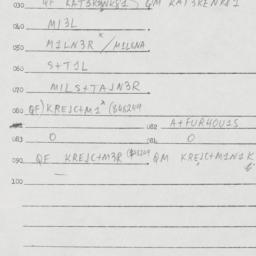 030 QF KAT3RENK81 QM KAT3RENK81
040 MI3L
050 M1LN3R × / M1LUNA
060 S+T1L
070 MILS+TAJN3R
080 QF) KREJC+M1 × ($48249
081 082 A+FURHOU1S
083 0 084 0
090 QF KREJC+M3R ($48249 QM KREJC+M1N1K
100